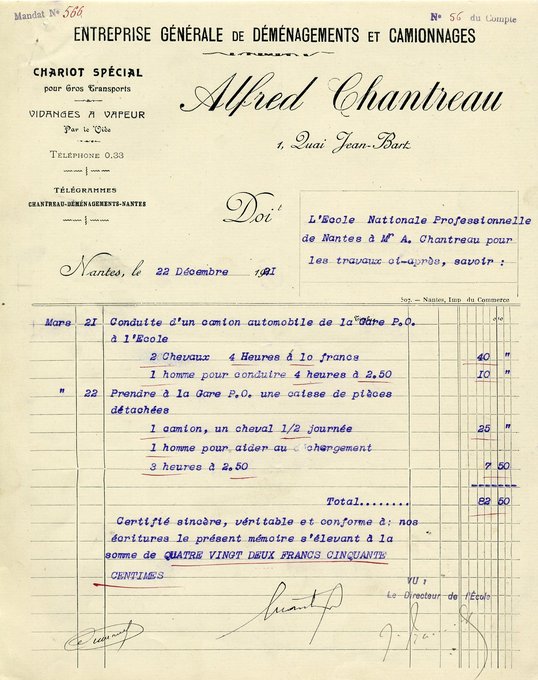 Mandat No 566
No 56 du Compte
ENTREPRISE GÉNÉRALE DE DÉMÉNAGEMENTS ET CAMIONNAGES
CHARIOT SPÉCIAL
pour Gros Transports
VIDANGES A VAPEUR
Par le Vide
TÉLÉPHONE 0.33
TÉLÉGRAMMES
CHANTREAU-DÉMÉNAGEMENTS-NANTES
Alfred Chantreau
1, Quai Jean-Bart
Doit
L'Ecole Nationale Professionnelle
de Nantes à Mr A. Chantreau pour
les travaux ci-après, savoir :
Nantes, le 22 Décembre 1921
507. — Nantes, Imp du Commerce
Mars 21 Conduite d'un camion automobile de la Gare P.O.
à l'Ecole
2 Chevaux 4 Heures à 10 francs 40 "
1 homme pour conduire 4 heures à 2.50 10 "
" 22 Prendre à la Gare P.O. une caisse de pièces
détachées
1 camion, un cheval 1/2 journée 25 "
1 homme pour aider au chargement
3 heures à 2.50 7 50
Total........ 82 50
Certifié sincère, véritable et conforme à: nos
écritures le présent mémoire s'élevant à la
somme de QUATRE VINGT DEUX FRANCS CINQUANTE
CENTIMES
VU :
Le Directeur de l'École